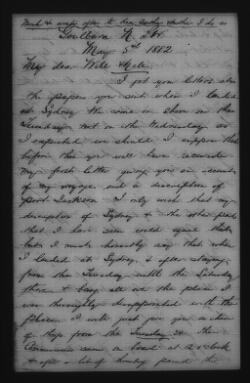 Goulburn N. S. W.
May 5th 1882
My dear Will
I got your letters also
the papers you sent when I landed
at Sydney We came in there on the
Tuesday not on the Wednesday as
I expected we should I suppose that
before this you will have received
my first letter giving you an account
of my voyage and a description of
Port Jackson I only wish that my
description of Sydney & the other places
that I have seen could equal that
but I must honestly say that when
I landed at Sydney, & after staying
from the Tuesday until the Saturday
there & being all over the place I
was thoroughly disappointed with the
place I will just give you a
of things from the Tuesday 20. The
came on board at 2 o'clock
& after a lot of the